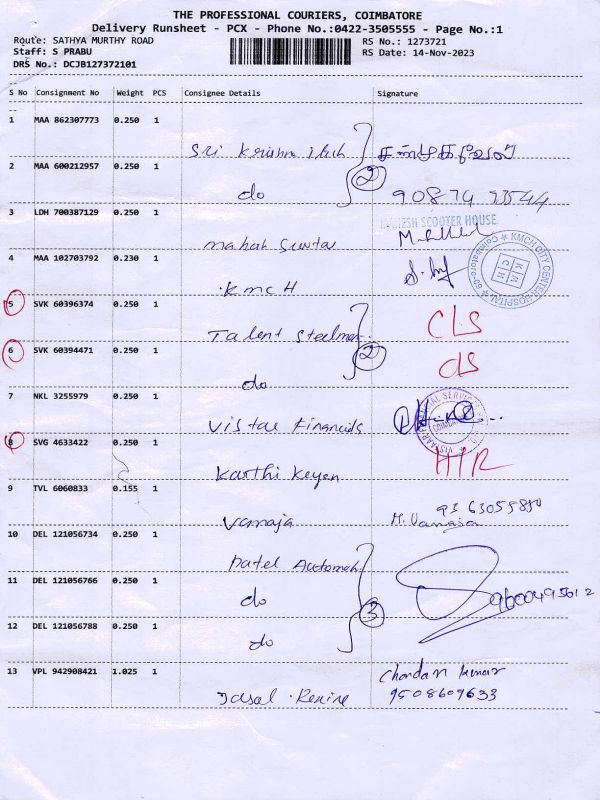 THE PROFESSIONAL COURIERS, COIMBATORE
Delivery Runsheet - PCX - Phone No.:0422-3505555 - Page No.:1
Route: SATHYA MURTHY ROAD RS No.: 1273721
Staff: S PRABU RS Date: 14-Nov-2023
DRS No.: DCJB127372101
S No Consignment No Weight PCS Consignee Details Signature
1 MAA 862307773 0.250 1
Sri Krishna சண்முகவேல்
2 MAA 600212957 0.250 1
do 2 90874 93544
3 LDH 700387129 0.250 1 SCOOTER HOUSE
4 MAA 102703792 0.230 1 KMCH CITY CENTER HOSPITAL
KMCH
5 SVK 60396374 0.250 1
Talent CLS
6 SVK 60394471 0.250 1 2
do CLS
7 NKL 3255979 0.250 1
Vistar
8 SVG 4633422 0.250 1
Karthi Keyen
9 TVL 6060833 0.155 1
Vanaja M. Vanaja
10 DEL 121056734 0.250 1
Patel
11 DEL 121056766 0.250 1
do 3 9600495012
12 DEL 121056788 0.250 1
do
13 VPL 942908421 1.025 1 Chandan Kumar
9508609633